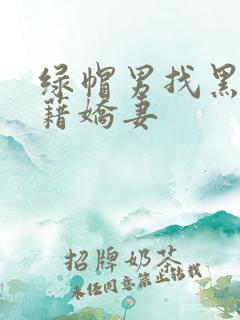 绿帽男找黑
籍嬌妻
招牌奶茶
未经同意禁止转载